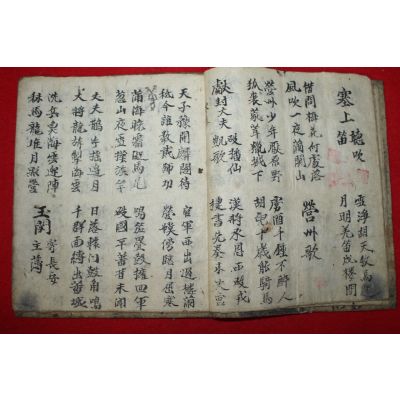 塞上聽吹笛
雪海胡天牧馬還
月明羌笛戍樓間
借問梅花何處落
風吹一夜滿關山
營州歌
營州少年厭原野
虜酒千鍾不醉人
狐裘蒙茸獵城下
胡兒十歲能騎馬
獻封大夫破播仙凱歌
漢將承恩西破戎
捷書先奏未央宮
天子預開麟閣待
秪今誰數貳師功
官軍西出過樓蘭
營幕傍臨月窟寒
蒲海曉霜凝馬尾
葱山夜雪撲旌竿
鳴笳疊鼓擁四軍
破國平蕃昔未聞
丈夫鵲印搖邊月
大將龍旗掣海雲
日落轅門鼓角鳴
千群面縛出蕃城
洗兵魚海雲迎陣
秣馬龍堆月照營
玉關寄長安主簿